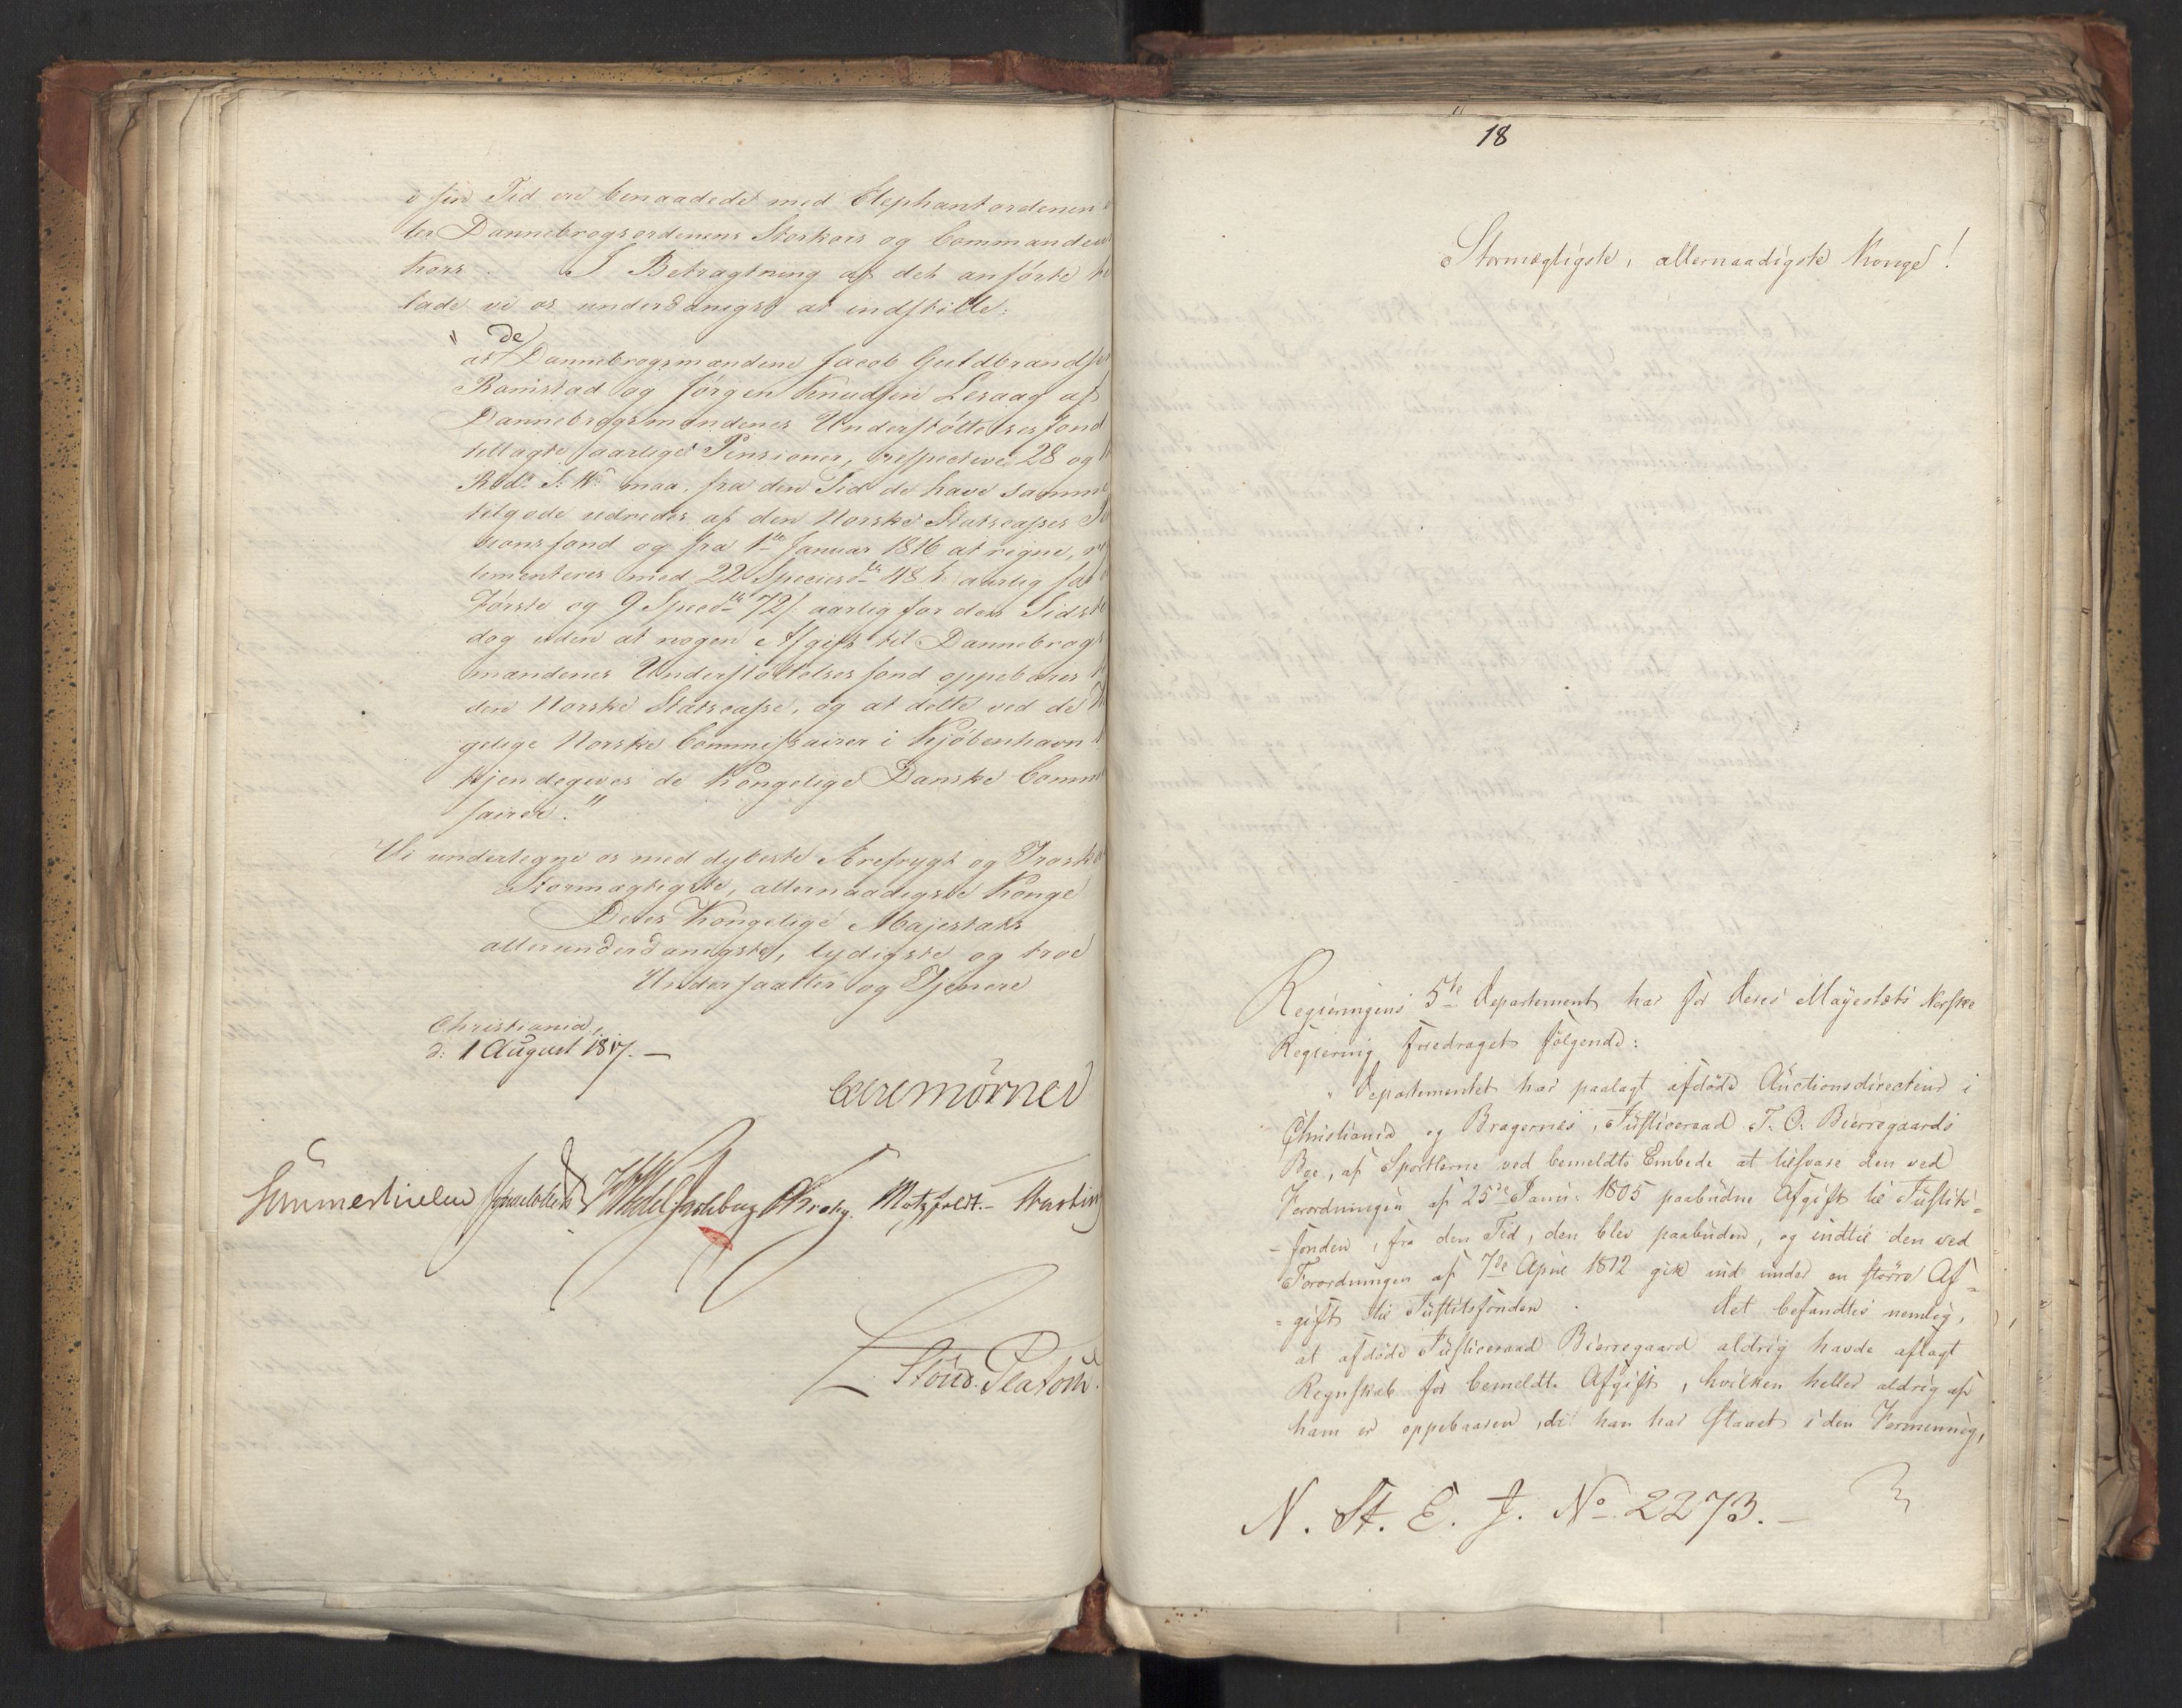 i sin Tid ere benaadede med Elephantordenen
ler Dannebrogsordenens Storkors og Commandeur
Kors. I Betragtning af det anførte
lade vi os underdanigst at indstille:
" at de Dannebrogsmændene Jacob Guldbrandse
Ramstad og Jørgen Knudsen Lesaag af
Dannebrogsmændenes Understøttelsesfond
tillagte aarlige Pensioner, respective 28 og
Rbd. S. V. maa, fra den Tid de have samme
tilgode udredes af den Norske Statscasses
sionsfond og fra 1te Januar 1816 at regne,
lementeres med 22 Speciesdlr 48 s. aarlig for
Første og 9 Specdlr 72 s. aarlig for den Sidste
dog uden at nogen Afgift til Dannebrogs
mændenes Understøttelsesfond oppebæres
den Norske Statscasse, og at dette ved de
gelige Norske Commissairer i Kjøbenhavn
tilkjendegives de Kongelige Danske Commis
sairer."
Vi undertegne os med dybeste Ærefrygt og Troskab
Stormægtigste, allernaadigste Konge
Deres Kongelige Majestæts
allerunderdanigste, lydigste og troe
Undersaatter og Tjenere
Christiania,
d: 1 August 1817. —
Carl Mörner
Sommerhielm Wedel Jarlsberg Krohg. Motzfeldt. —
Stöud. Platou.
18
Stormægtigste, allernaadigste Konge!
Regieringens 5te Departement har for Deres Mayestæts Norske
Regiering foredraget følgende:
" Departementet har paalagt afdøde Auctionsdirecteur i
Christiania og Bragernæs, Justiceraad T. O. Bierregaards
Boe, af Sportlerne ved bemeldte Embede at tilsvare den ved
Forordningen af 25de Janu: 1805 paabudne Afgift til Justits-
-fonden, fra den Tid, den blev paabuden, og indtil den ved
Forordningen af 7de April 1812 gik ind under en større Af-
-gift til Justitsfonden. Det befandtes nemlig,
at afdøde Justiceraad Bierregaard aldrig havde aflagt
Regnskab for bemeldte Afgift, hvilken heller aldrig af
ham er oppebaaren, di han har staaet i den Formening,
N. St. E. J. No 2273. —